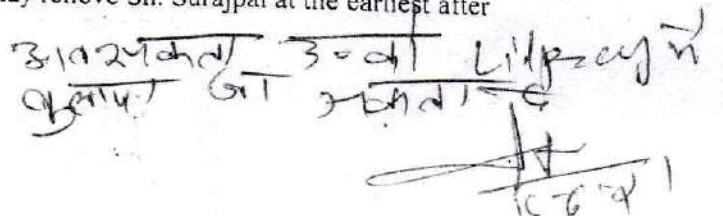 ay remove Sh. Surajpal at the earliest after
आवश्यकता उनकी Library में
बुलाया जा सकता है